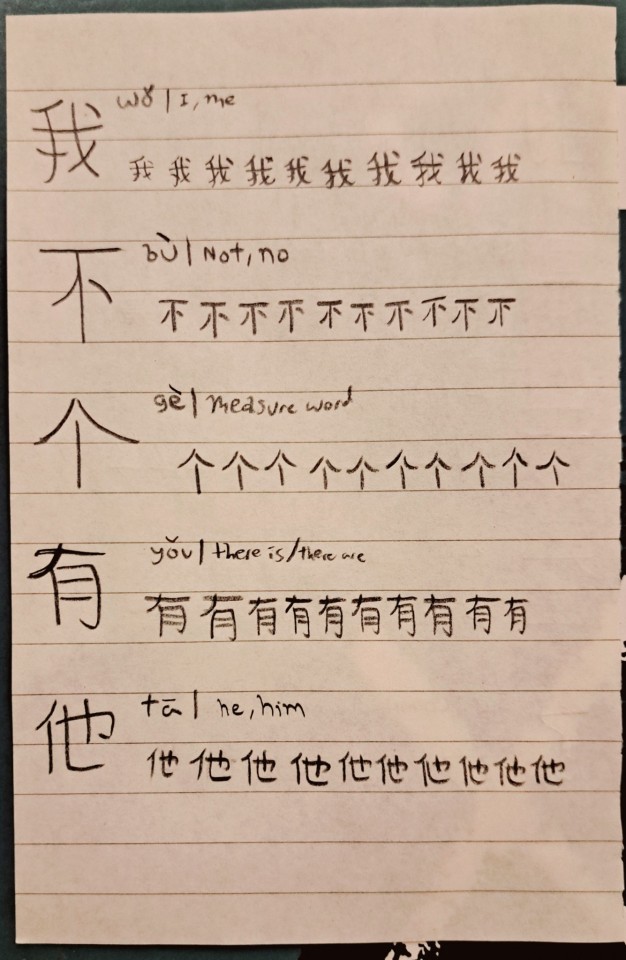 我 wǒ | I, me
我 我 我 我 我 我 我 我 我 我
不 bù | Not, no
不 不 不 不 不 不 不 不 不 不
个 gè | measure word
个 个 个 个 个 个 个 个 个 个
有 yǒu | there is/there are
有 有 有 有 有 有 有 有 有 有
他 tā | he, him
他 他 他 他 他 他 他 他 他 他